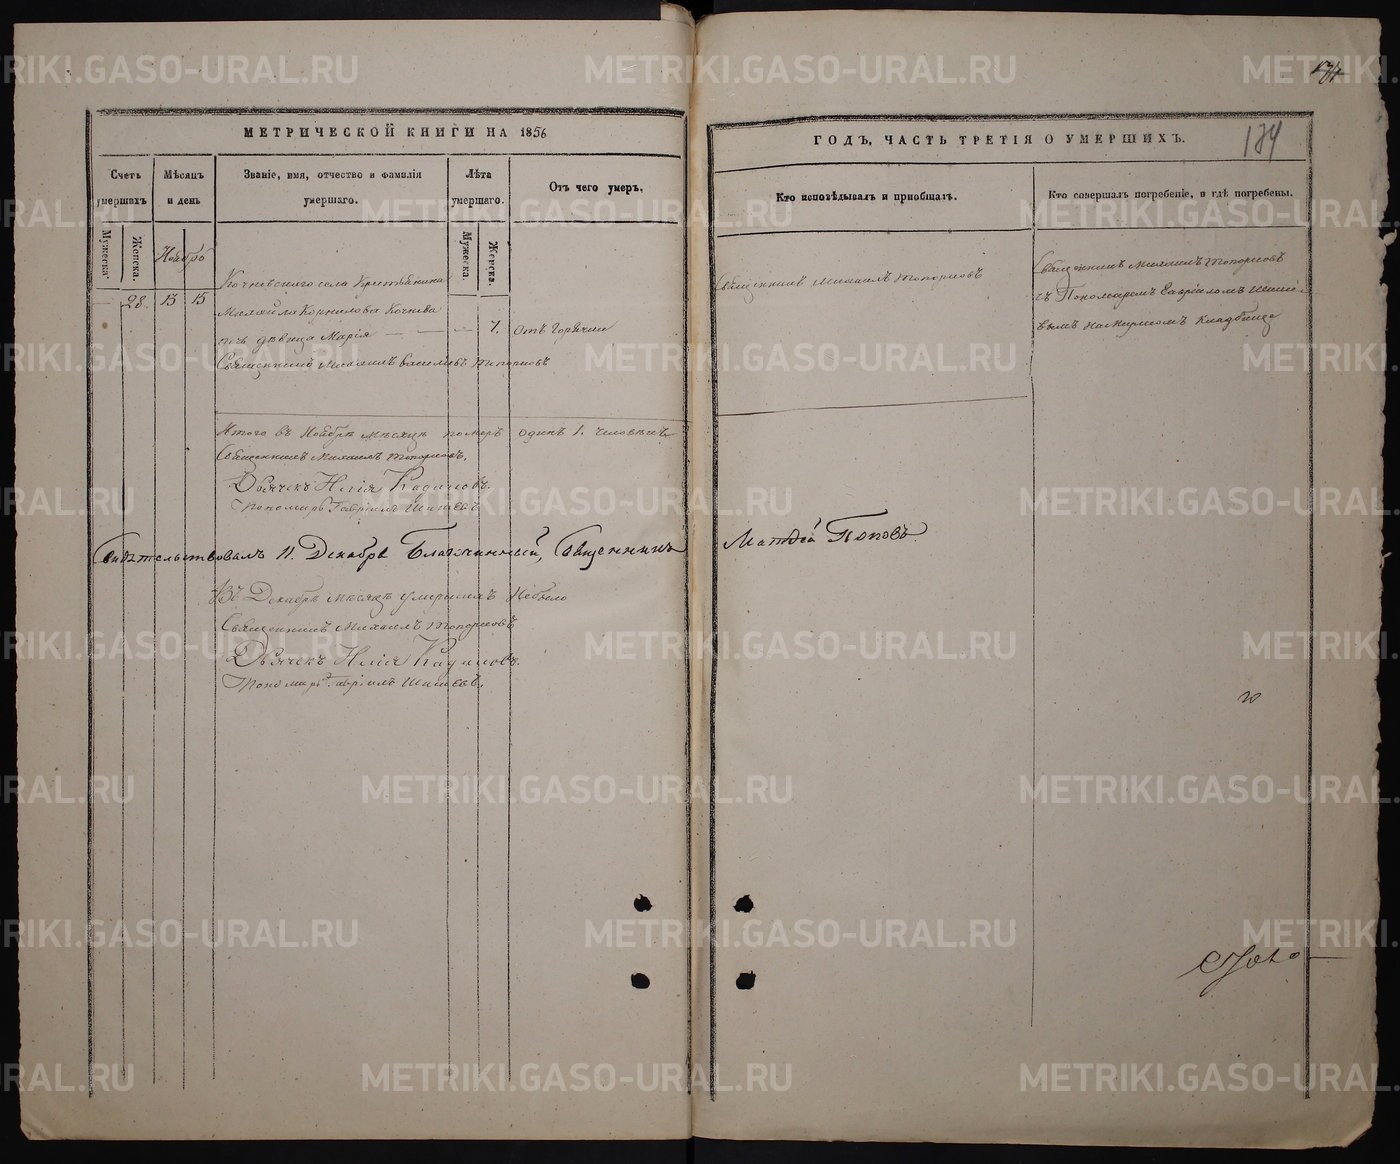 МЕТРИЧЕСКОЙ КНИГИ НА 1856
ГОДЪ, ЧАСТЬ ТРЕТІЯ О УМЕРШИХЪ.
184
Счетъ умершихъ
Мѣсяцъ и день
Званіе, имя, отчество и фамилія умершаго.
Лѣта умершаго.
Отъ чего умеръ.
Кто исповѣдывалъ и пріобщалъ.
Кто совершалъ погребеніе, и гдѣ погребены.
Мужеска.
Женска.
Мужеска.
Женска.
Ноябрь
Кочневскаго села Крестьянина
28. 13 15
Михайла Корнилова Кочнева
дочь дѣвица Марія
7. Отъ Горячки
Священникъ Михаилъ Топорковъ
Священникъ Михаилъ Топорковъ
съ Пономаремъ Гавріиломъ
вымъ на Кладбище
Священникъ Михаилъ Васильевъ Топорковъ
Итого въ Ноябрѣ мѣсяцѣ померъ одинъ 1. человѣкъ
Священникъ Михаилъ Топорковъ.
Дьячекъ Илія Кадиловъ.
Пономарь Гавріилъ
Свидѣтельствовалъ 11. Декабря Благочинный, Священникъ Матѳей Поповъ.
Въ Декабрѣ мѣсяцѣ умершихъ Небыло
Священникъ Михаилъ Топорковъ
Дьячекъ Илія Кадиловъ.
Пономарь Гавріилъ
METRIKI.GASO-URAL.RU